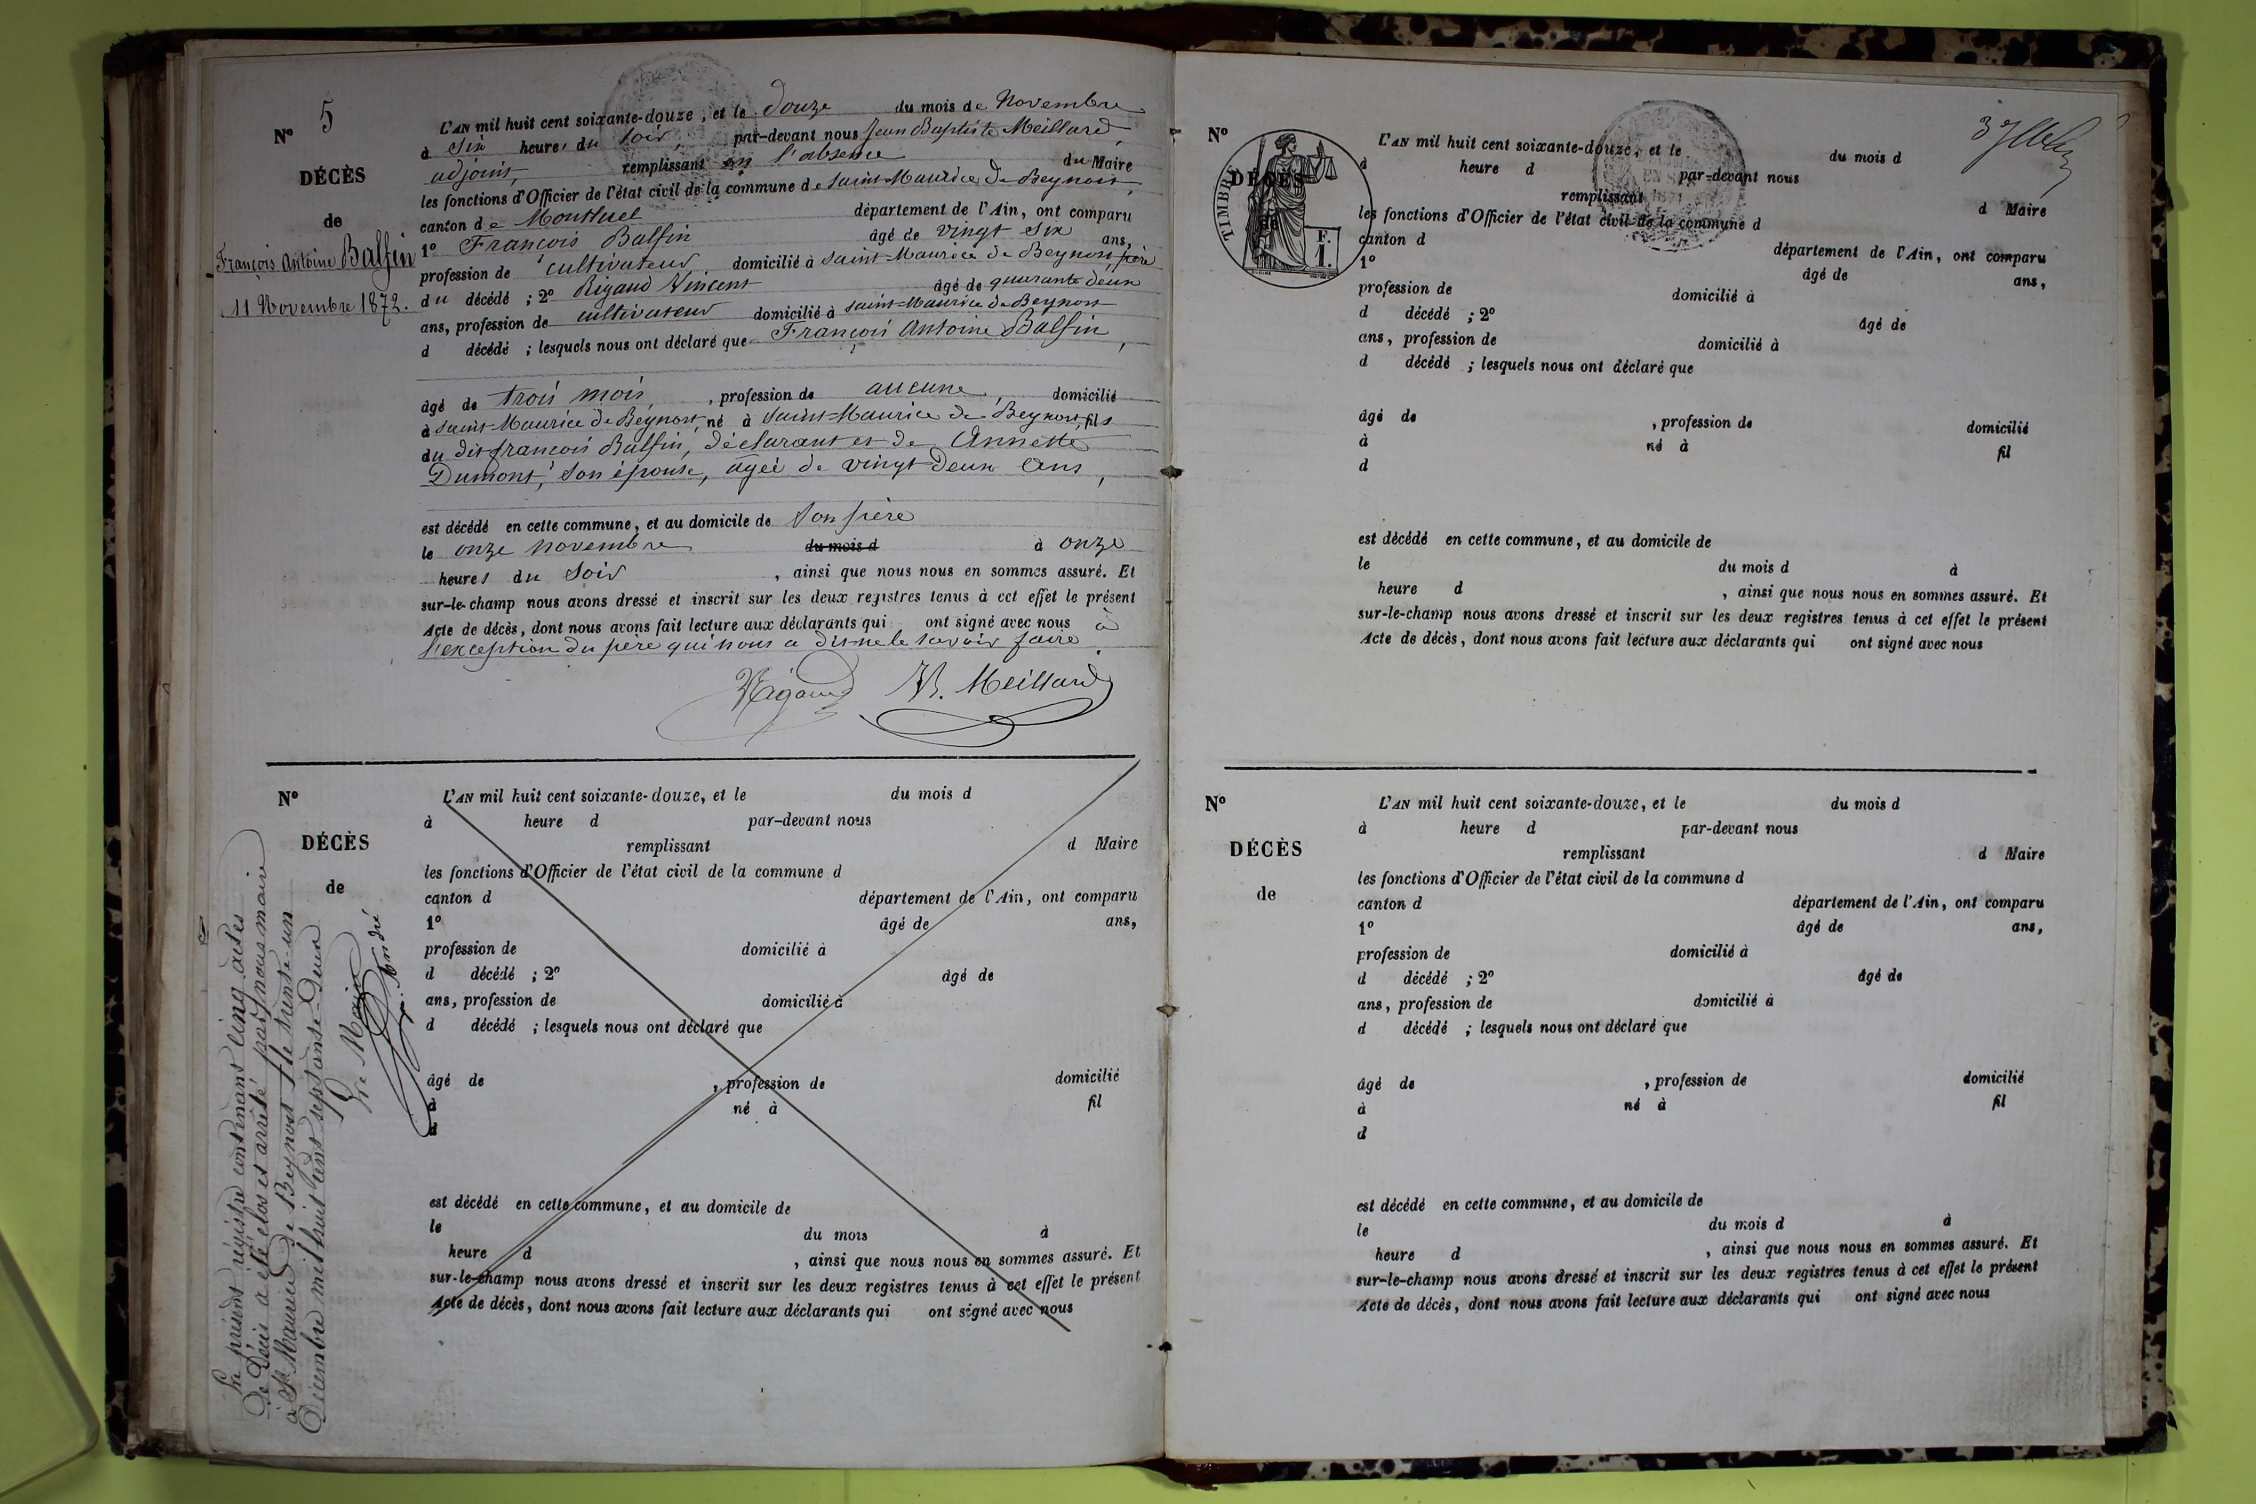 N° 5
DÉCÈS
de
François Antoine Balfin
11 Novembre 1872.
L'AN mil huit cent soixante-douze, et le douze du mois de Novembre
à Six heures du soir, par-devant nous Jean Baptiste Meillard
adjoint, remplissant en l'absence du Maire
les fonctions d'Officier de l'état civil de la commune de Saint-Maurice de Beynost,
canton de Montluel département de l'Ain, ont comparu
1° François Balfin âgé de vingt six ans,
profession de cultivateur domicilié à Saint-Maurice de Beynost, père
du décédé ; 2° Rigaud Vincent âgé de quarante deux
ans, profession de cultivateur domicilié à Saint-Maurice de Beynost
d décédé ; lesquels nous ont déclaré que François Antoine Balfin,
âgé de trois mois, , profession de aucune, domicilié
à Saint-Maurice de Beynost, né à Saint-Maurice de Beynost, fils
du dit françois Balfin, déclarant et de Annette
Dumont, son épouse, âgée de vingt deux ans,
est décédé en cette commune, et au domicile de son père
le onze novembre du mois d à onze
heures du soir , ainsi que nous nous en sommes assuré. Et
sur-le-champ nous avons dressé et inscrit sur les deux registres tenus à cet effet le présent
Acte de décès, dont nous avons fait lecture aux déclarants qui ont signé avec nous à
l'exception du père qui nous a dit ne le savoir faire.
VRigaud JB. Meillard
N°
DÉCÈS
de
L'AN mil huit cent soixante-douze, et le du mois d
à heure d par-devant nous
remplissant d Maire
les fonctions d'Officier de l'état civil de la commune d
canton d département de l'Ain, ont comparu
1° âgé de ans,
profession de domicilié à
d décédé ; 2° âgé de
ans, profession de domicilié à
d décédé ; lesquels nous ont déclaré que
âgé de , profession de domicilié
à né à fil
d
est décédé en cette commune, et au domicile de
le du mois à
heure d , ainsi que nous nous en sommes assuré. Et
sur-le-champ nous avons dressé et inscrit sur les deux registres tenus à cet effet le présent
Acte de décès, dont nous avons fait lecture aux déclarants qui ont signé avec nous
Le présent régistre contenant cinq actes
de Décès a été clos et arrêté par nous maire
à St Maurice de Beynost le trente-un
Décembre mil huit cent septante-Deux
Le Maire
André
N°
DÉCÈS
de
TIMBRE
F.
1.
L'AN mil huit cent soixante-douze, et le du mois d
à heure d par-devant nous
remplissant d Maire
les fonctions d'Officier de l'état civil de la commune d
canton d département de l'Ain, ont comparu
1° âgé de ans,
profession de domicilié à
d décédé ; 2° âgé de
ans, profession de domicilié à
d décédé ; lesquels nous ont déclaré que
âgé de , profession de domicilié
à né à fil
d
est décédé en cette commune, et au domicile de
le du mois d à
heure d , ainsi que nous nous en sommes assuré. Et
sur-le-champ nous avons dressé et inscrit sur les deux registres tenus à cet effet le présent
Acte de décès, dont nous avons fait lecture aux déclarants qui ont signé avec nous
N°
DÉCÈS
de
L'AN mil huit cent soixante-douze, et le du mois d
à heure d par-devant nous
remplissant d Maire
les fonctions d'Officier de l'état civil de la commune d
canton d département de l'Ain, ont comparu
1° âgé de ans,
profession de domicilié à
d décédé ; 2° âgé de
ans, profession de domicilié à
d décédé ; lesquels nous ont déclaré que
âgé de , profession de domicilié
à né à fil
d
est décédé en cette commune, et au domicile de
le du mois d à
heure d , ainsi que nous nous en sommes assuré. Et
sur-le-champ nous avons dressé et inscrit sur les deux registres tenus à cet effet le présent
Acte de décès, dont nous avons fait lecture aux déclarants qui ont signé avec nous